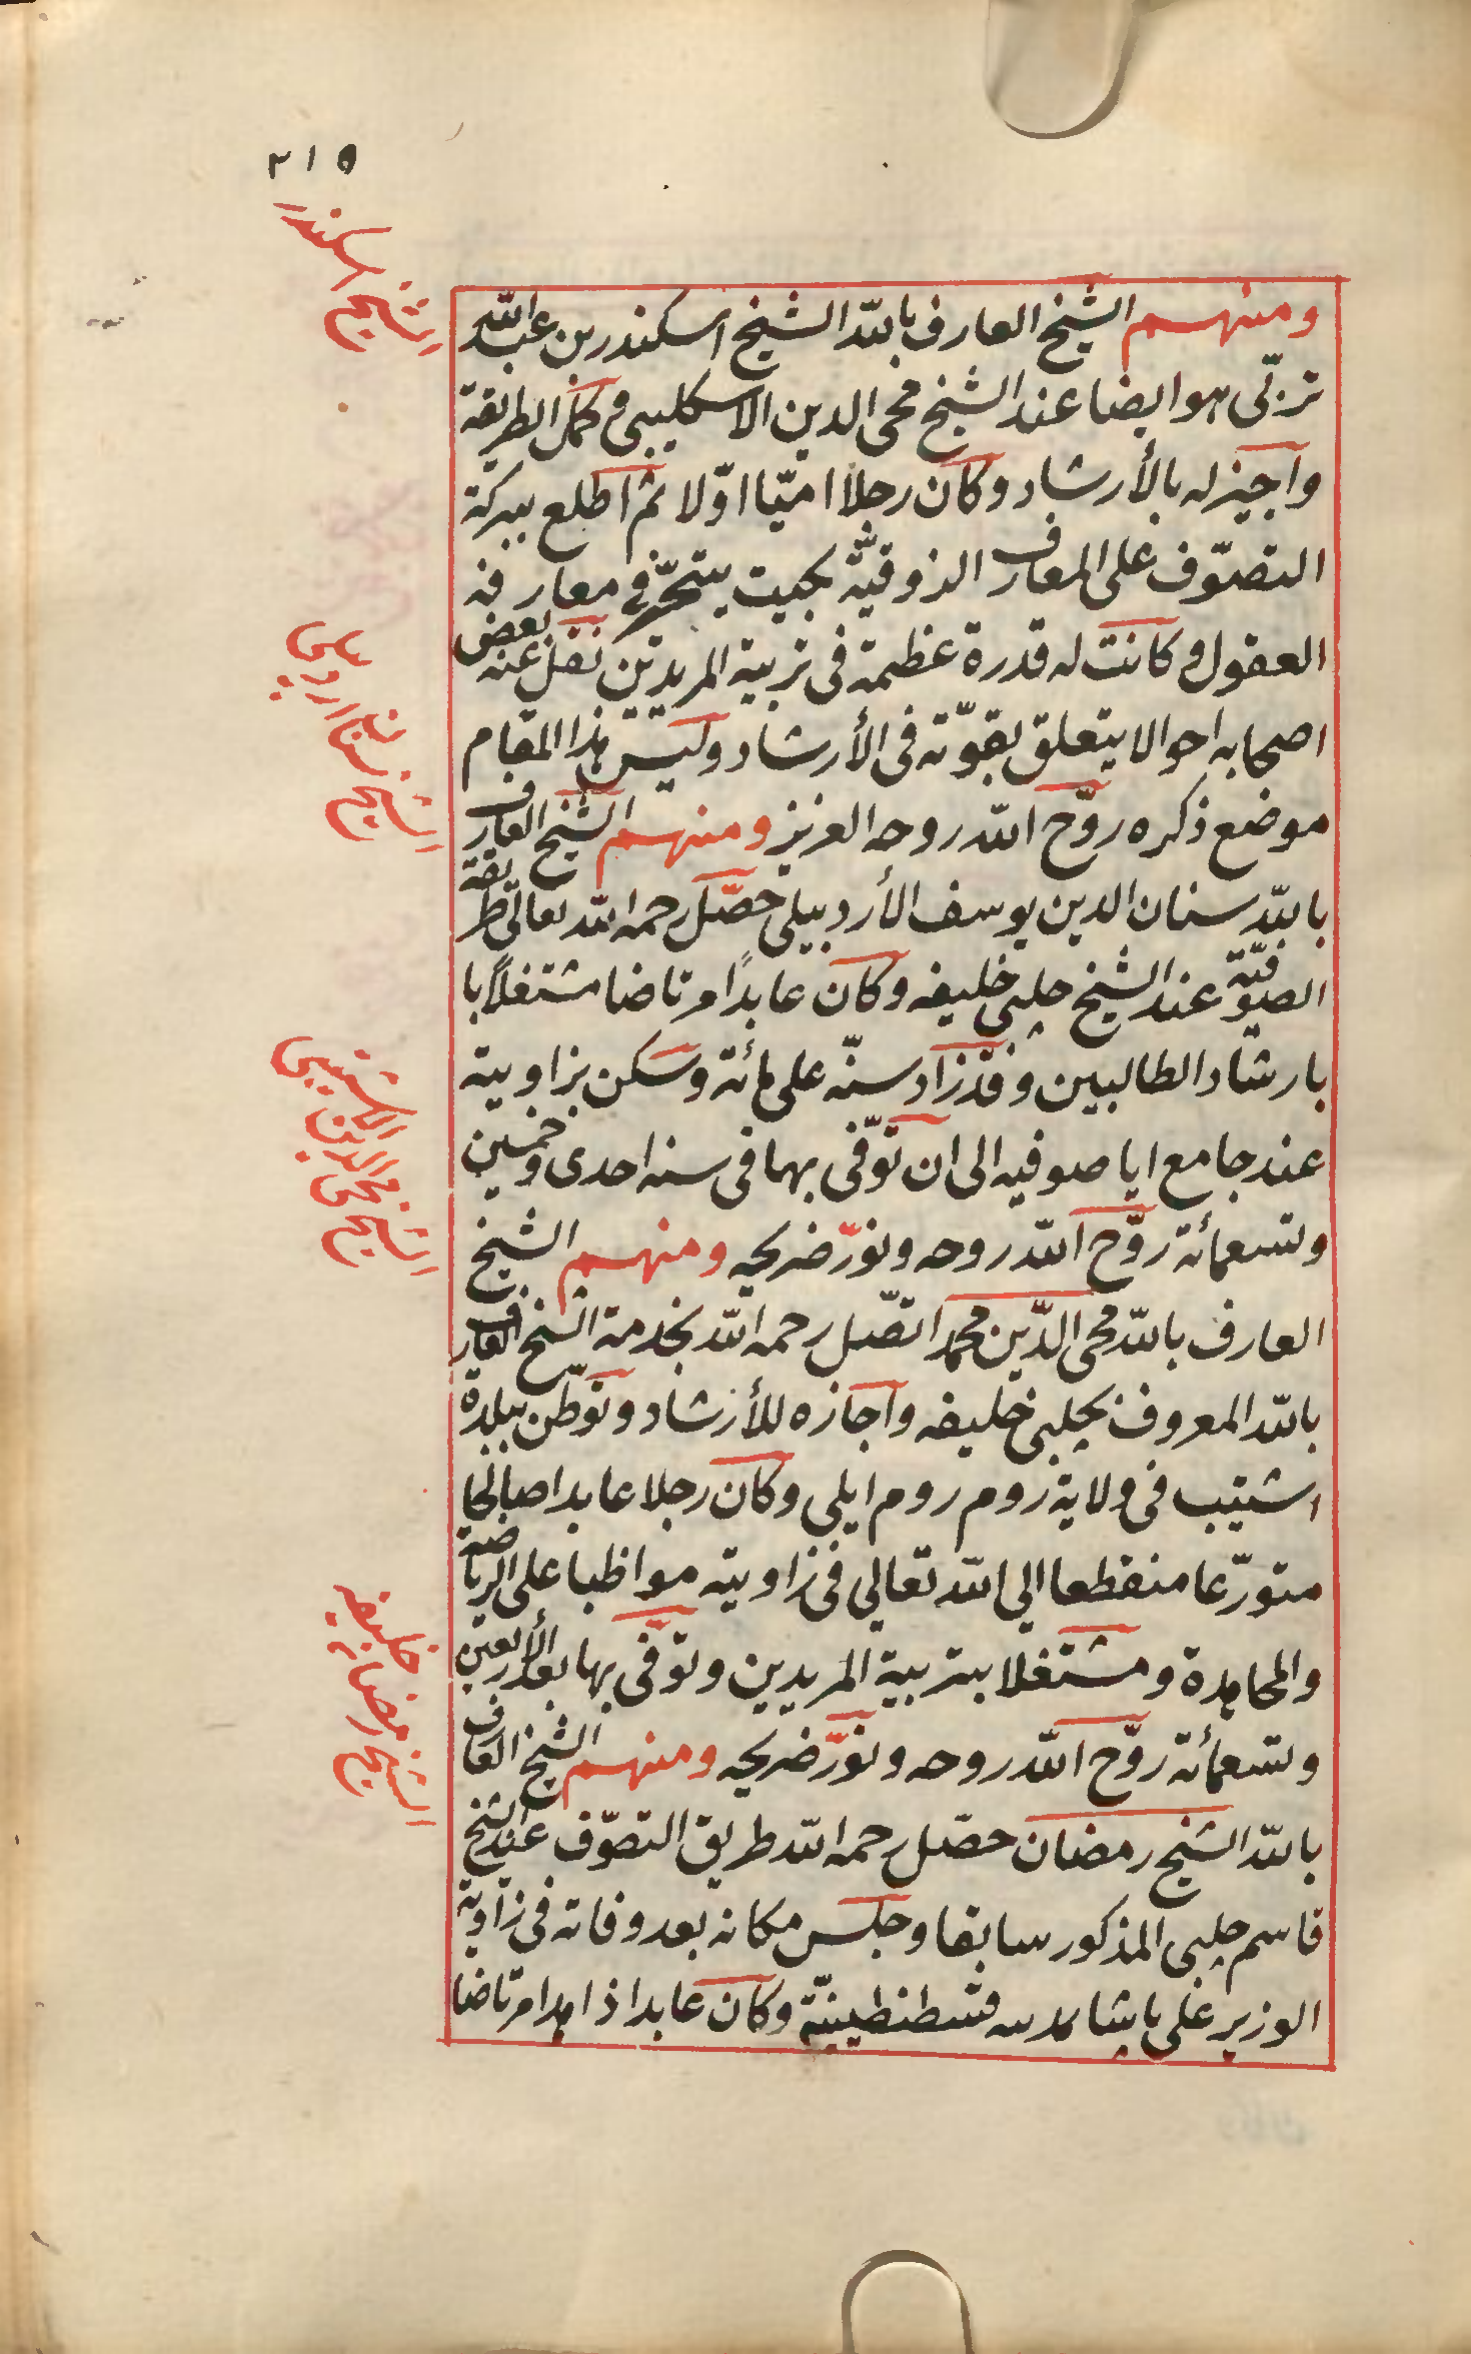 ٢١٥
ومنهم الشيخ العارف بالله الشيخ اسكندر بن عبد الله
تربّى هو ايضا عند الشيخ محى الدين الاسكليبى وكمل الطريقة
واجيز له بالأرشاد وكان رجلا اميّا اوّلا ثم اطلع ببركة
التصوّف على المعارف الذوقيّة بحيث يتحيّر فى معارفه
العقول وكانت له قدرة عظيمة فى تربية المريدين نقل عنه بعض
اصحابه احوالا يتعلق بقوّته فى الأرشاد وليس هذا المقام
موضع ذكره روّح الله روحه العزيز ومنهم الشيخ العارف
بالله سنان الدين يوسف الأردبيلى حصّل رحمه الله تعالى طريقة
الصوفيّة عند الشيخ چلبى خليفه وكان عابدًا مرتاضا مشتغلاً با
بارشاد الطالبين وقد زاد سنّه على مائة وسكن بزاويته
عند جامع ايا صوفيه الى ان توّفى بها فى سنه احدى وخمسين
وتسعمائة روّح الله روحه ونوّر ضريحه ومنهم الشيخ
العارف بالله محى الدّين محمد اتصّل رحمه الله بخدمة الشيخ العارف
بالله المعروف بچلبى خليفه واجازه للأرشاد وتوطّن ببلدة
اشتيب فى ولاية روم روم ايلى وكان رجلا عابدا صالحا
متورّعا منقطعا الي الله تعالي فى زاويته مواظبا على الرياضة
والمجاهدة ومشتغلا بتربية المريدين وتوّفى بها بعد الأربعين
وتسعمائة روّح الله روحه ونوّر ضريحه ومنهم الشيخ العارف
بالله الشيخ رمضان حصّل رحمه الله طريق التصوّف عند الشيخ
قاسم چلبى المذكور سابقا وجلس مكانه بعد وفاته فى زاوية
الوزير على پاشا قسطنطينيّة وكان عابدا ذاهدا مرتاضا
الشيخ اسكندر
الشيخ سنان اردبيلى
الشيخ محى الدين الاشتيبى
الشيخ رمضان خليفه